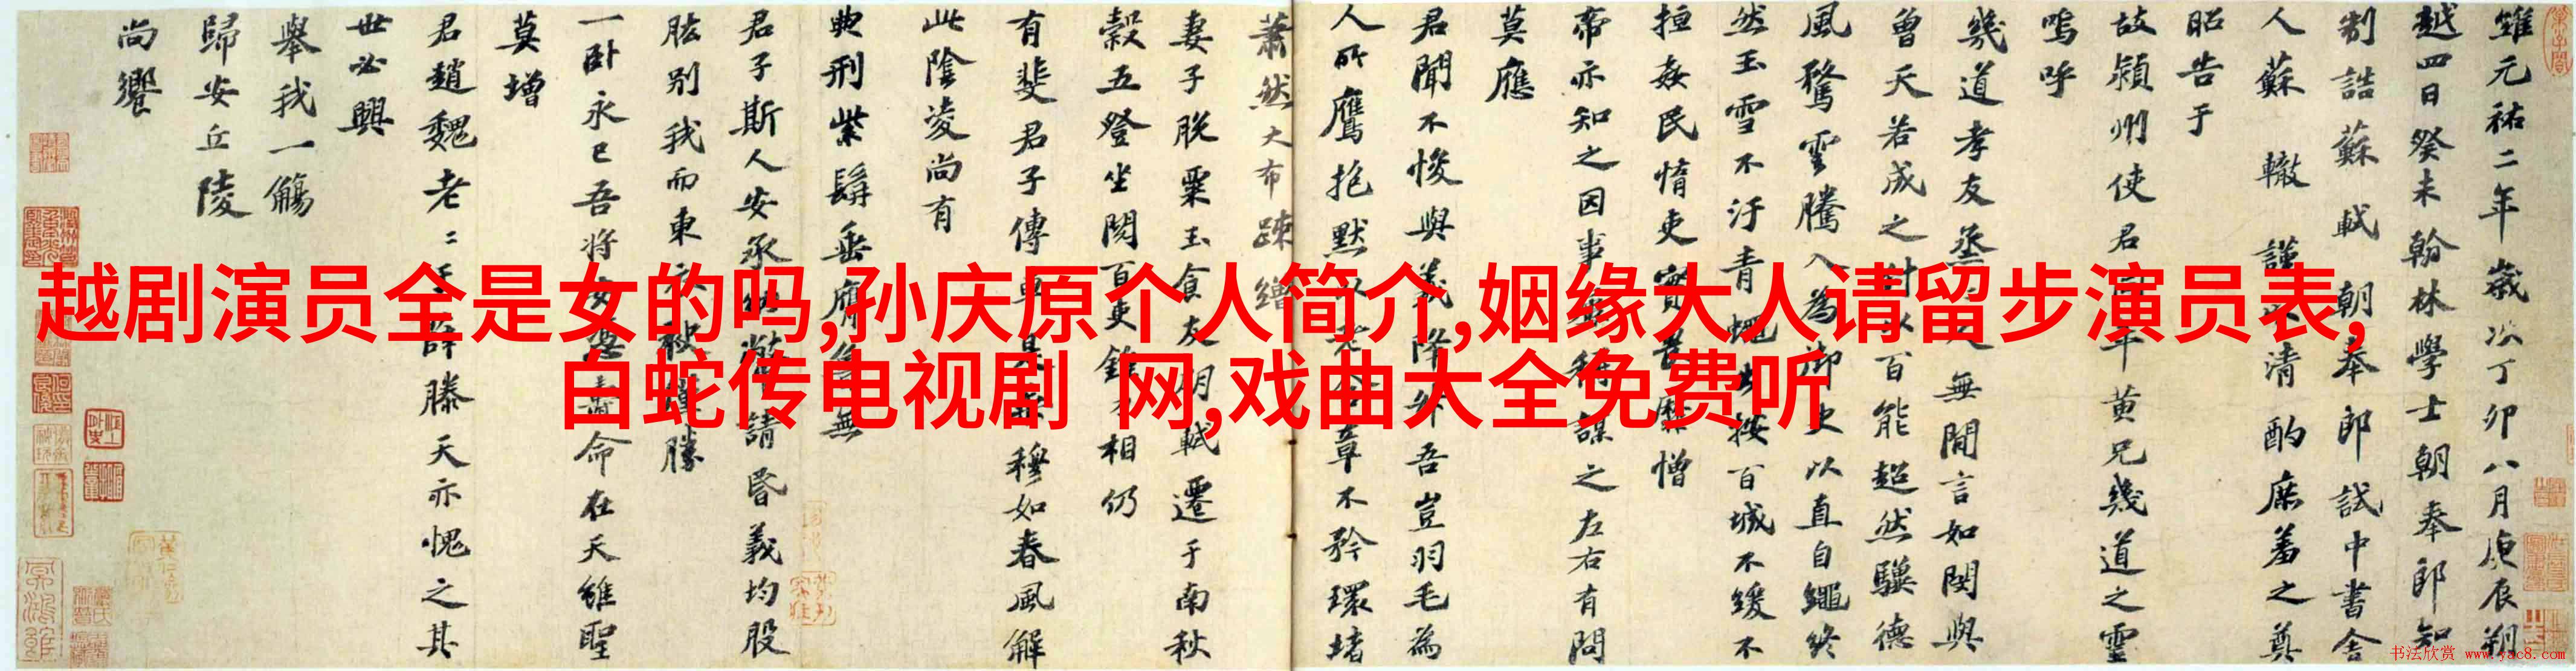 越剧演员全是女的吗,孙庆原个人简介,姻缘大人请留步演员表,
白蛇传电视剧 网,戏曲大全免费听
維元祐二年歲次丁卯八月庚辰朔
越四日癸未翰林學士朝奉郎知
制誥蘇軾朝奉郎試中書舍
人蘇轍謹以清酌庶羞之奠
昭告于
故潁州使君同年黃兄幾道之靈
嗚呼
幾道孝友烝烝人無間言如閔與
曾天若成之付以百能超然驥德
風騖雲騰入為御史以直自繩終
然玉雪不汙青蠅出按百城不緩不
擅姦民惰吏實畏靡憎
帝亦知之因事屢稱謀之左右有問
莫應
君聞不悛與義降升吾豈羽毛為
人所鷹抱默以老終章不矜環堵
蕭然大布疎繒
妻子脫粟玉食友朋軾遷于南秋
穀五登坐閱百吏錐刀相仍
有斐君子傳車是乘穆如春風解
此陰凌尚有
典刑紫髯垂膺魯無
君子斯人安承納幣請昏義均股
肱別我而東衣袂僅勝
一卧永已吾將安憑壽命在天雖聖
莫增
君趙魏老老于薛滕天亦愧之其
世必興
舉我一觴
歸安丘陵
尚饗
书法欣赏 www.yac8.com